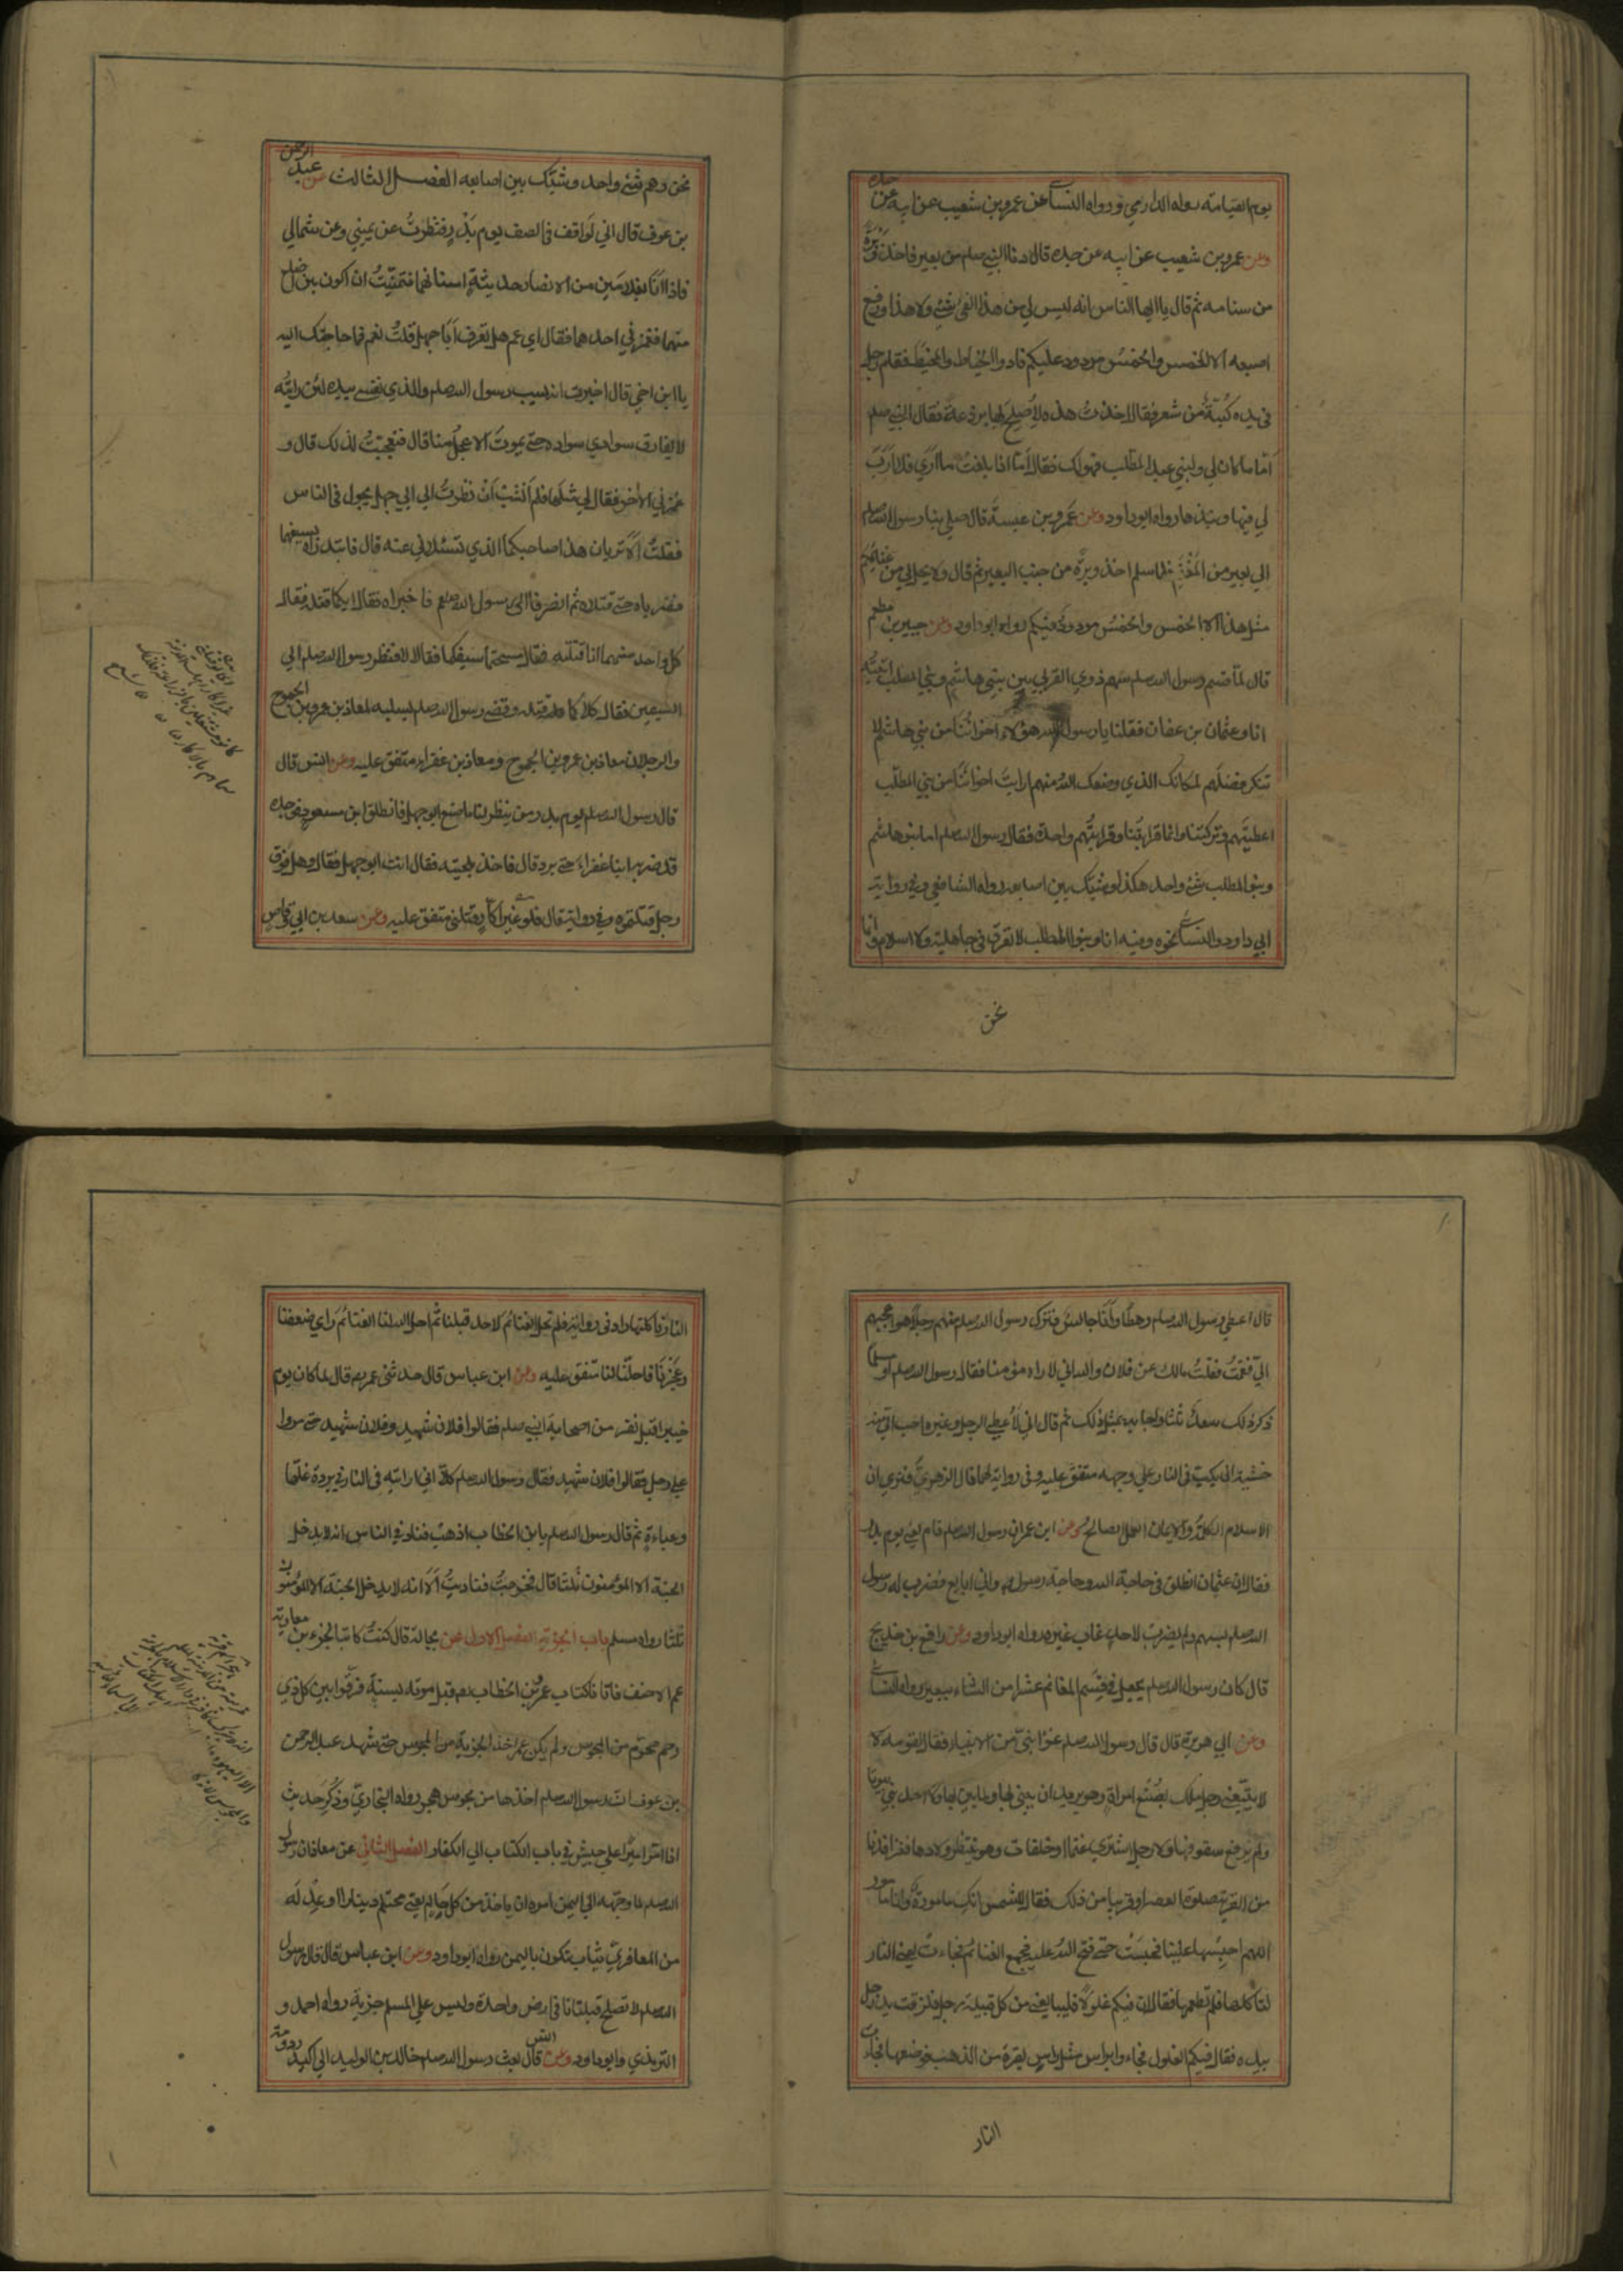 يوم القيامة رواه الدارمي ورواه النسائي عن عمرو بن شعيب عن ابيه عن جده
وعن عمرو بن شعيب عن ابيه عن جده قال دنا النبي صلعم من بعير فاخذ وبرة
من سنامه ثم قال يا ايها الناس انه ليس لي من هذا الفئ شئ ولا هذا ورفع
اصبعه الا الخمس والخمس مردود عليكم فادوا الخياط والمخيط فقام رجل
في يده كبة من شعر فقال اخذت هذه لاصلح بها بردعة فقال النبي صلعم
اما ما كان لي ولبني عبد المطلب فهو لك فقال اما اذا بلغت ما ارى فلا ارب
لي فيها ونبذها رواه ابوداود وعن عمرو بن عبسة قال صلى بنا رسول الله صلعم
الي بعير من المغنم فلما سلم اخذ وبرة من جنب البعير ثم قال ولا يحل لي من غنائمكم
مثل هذا الا الخمس والخمس مردود فيكم رواه ابوداود وعن جبير بن مطعم
قال لما قسم رسول الله صلعم سهم ذوي القربي بين بني هاشم وبني المطلب اتيته
انا وعثمان بن عفان فقلنا يا رسول الله هؤلاء اخواننا من بني هاشم لا
ننكر فضلهم لمكانك الذي وضعك الله منهم ارايت اخواننا من بني المطلب
اعطيتهم وتركتنا وانما قرابتنا وقرابتهم واحدة فقال رسول الله صلعم اما بنو هاشم
وبنو المطلب شئ واحد هكذا وشبك بين اصابعه رواه الشافعي وفي رواية
ابي داود والنسائي نحوه وفيه انا وبنو المطلب لا نفترق في جاهلية ولا اسلام وانما
نحن
نحن وهم شئ واحد وشبك بين اصابعه الفصل الثالث عن عبد الرحمن
بن عوف قال اني لواقف في الصف يوم بدر فنظرت عن يميني وعن شمالي
فاذا انا بغلامين من الانصار حديثة اسنانهما فتمنيت ان اكون بين اضلع
منهما فغمزني احدهما فقال اي عم هل تعرف ابا جهل قلت نعم فما حاجتك اليه
يا ابن اخي قال اخبرت انه يسب رسول الله صلعم والذي نفسي بيده لئن رايته
لا يفارق سوادي سواده حتى يموت الاعجل منا قال فتعجبت لذلك قال و
غمزني الاخر فقال لي مثلها فلم انشب ان نظرت الي ابي جهل يجول في الناس
فقلت الا تريان هذا صاحبكما الذي تسئلاني عنه قال فابتدراه بسيفيهما
فضرباه حتى قتلاه ثم انصرفا الى رسول الله صلعم فاخبراه فقال ايكما قتله فقال
كل واحد منهما انا قتلته فقال هل مسحتما سيفيكما فقالا لا فنظر رسول الله صلعم الي
السيفين فقال كلاكما قتله وقضي رسول الله صلعم بسلبه لمعاذ بن عمرو بن الجموح
والرجلان معاذ بن عمرو بن الجموح ومعاذ بن عفراء متفق عليه وعن انس قال
قال رسول الله صلعم يوم بدر من ينظر لنا ما صنع ابو جهل فانطلق ابن مسعود فوجده
قد ضربه ابنا عفراء حتى برد قال فاخذ بلحيته فقال انت ابو جهل فقال وهل فوق
رجل قتلتموه وفي رواية قال فلو غير اكار قتلني متفق عليه وعن سعد بن ابي وقاص
قال اعطي رسول الله صلعم رهطا وانا جالس فترك رسول الله صلعم منهم رجلا هو اعجبهم
الي فقمت فقلت مالك عن فلان والله اني لاراه مؤمنا فقال رسول الله صلعم او مسلما
ذكر ذلك سعد ثلثا واجابه بمثل ذلك ثم قال اني لاعطي الرجل وغيره احب الي منه
خشية ان يكب في النار علي وجهه متفق عليه وفي رواية لهما قال الزهري فنرى ان
الاسلام الكلمة والايمان العمل الصالح وعن ابن عمر ان رسول الله صلعم قام يعني يوم بدر
فقال ان عثمان انطلق في حاجة الله وحاجة رسوله واني ابايع له فضرب له رسول
الله صلعم بسهم ولم يضرب لاحد غاب غيره رواه ابوداود وعن رافع بن خديج
قال كان رسول الله صلعم يجعل في قسم المغانم عشرا من الشاء ببعير رواه النسائي
وعن ابي هريرة قال قال رسول الله صلعم غزا نبي من الانبياء فقال لقومه لا
لا يتبعني رجل ملك بضع امراة وهو يريد ان يبني بها ولما يبن بها ولا احد بني بيوتا
ولم يرفع سقوفها ولا رجل اشترى غنما او خلفات وهو ينتظر ولادها فغزا فدنا
من القرية صلوة العصر او قريبا من ذلك فقال للشمس انك مامورة وانا مامور
اللهم احبسها علينا فحبست حتى فتح الله عليه فجمع الغنائم فجاءت يعني النار
لتاكلها فلم تطعمها فقال ان فيكم غلولا فليبايعني من كل قبيلة رجل فلزقت يد رجل
بيده فقال فيكم الغلول فجاءوا براس مثل راس بقرة من الذهب فوضعها فجاءت
النار
النار فاكلتها زاد في رواية فلم تحل الغنائم لاحد قبلنا ثم احل الله لنا الغنائم راي ضعفنا
وعجزنا فاحلها لنا متفق عليه وعن ابن عباس قال حدثني عمر رض قال لما كان يوم
خيبر اقبل نفر من اصحابة النبي صلعم فقالوا فلان شهيد وفلان شهيد حتى مروا
علي رجل فقالوا فلان شهيد فقال رسول الله صلعم كلا اني رايته في النار في بردة غلها
او عباءة ثم قال رسول الله صلعم يا بن الخطاب اذهب فناد في الناس انه لا يدخل
الجنة الا المؤمنون ثلثا قال فخرجت فناديت الا انه لا يدخل الجنة الا المؤمنون
ثلثا رواه مسلم باب الجزية الفصل الاول عن بجالة قال كنت كاتبا لجزء بن معاوية
عم الاحنف فاتانا كتاب عمر بن الخطاب رض قبل موته بسنة فرقوا بين كل ذي
رحم محرم من المجوس ولم يكن عمر اخذ الجزية من المجوس حتى شهد عبد الرحمن
بن عوف ان رسول الله صلعم اخذها من مجوس هجر رواه البخاري وذكر حديث
اذا امر اميرا علي جيش في باب الكتاب الي الكفار الفصل الثاني عن معاذ ان رسول
الله صلعم لما وجهه الي اليمن امره ان ياخذ من كل حالم يعني محتلم دينارا او عدله
من المعافري ثياب تكون باليمن رواه ابوداود وعن ابن عباس قال قال رسول
الله صلعم لا تصلح قبلتان في ارض واحدة وليس علي المسلم جزية رواه احمد و
الترمذي وابوداود وعن انس قال بعث رسول الله صلعم خالد بن الوليد الي اكيدر دومة